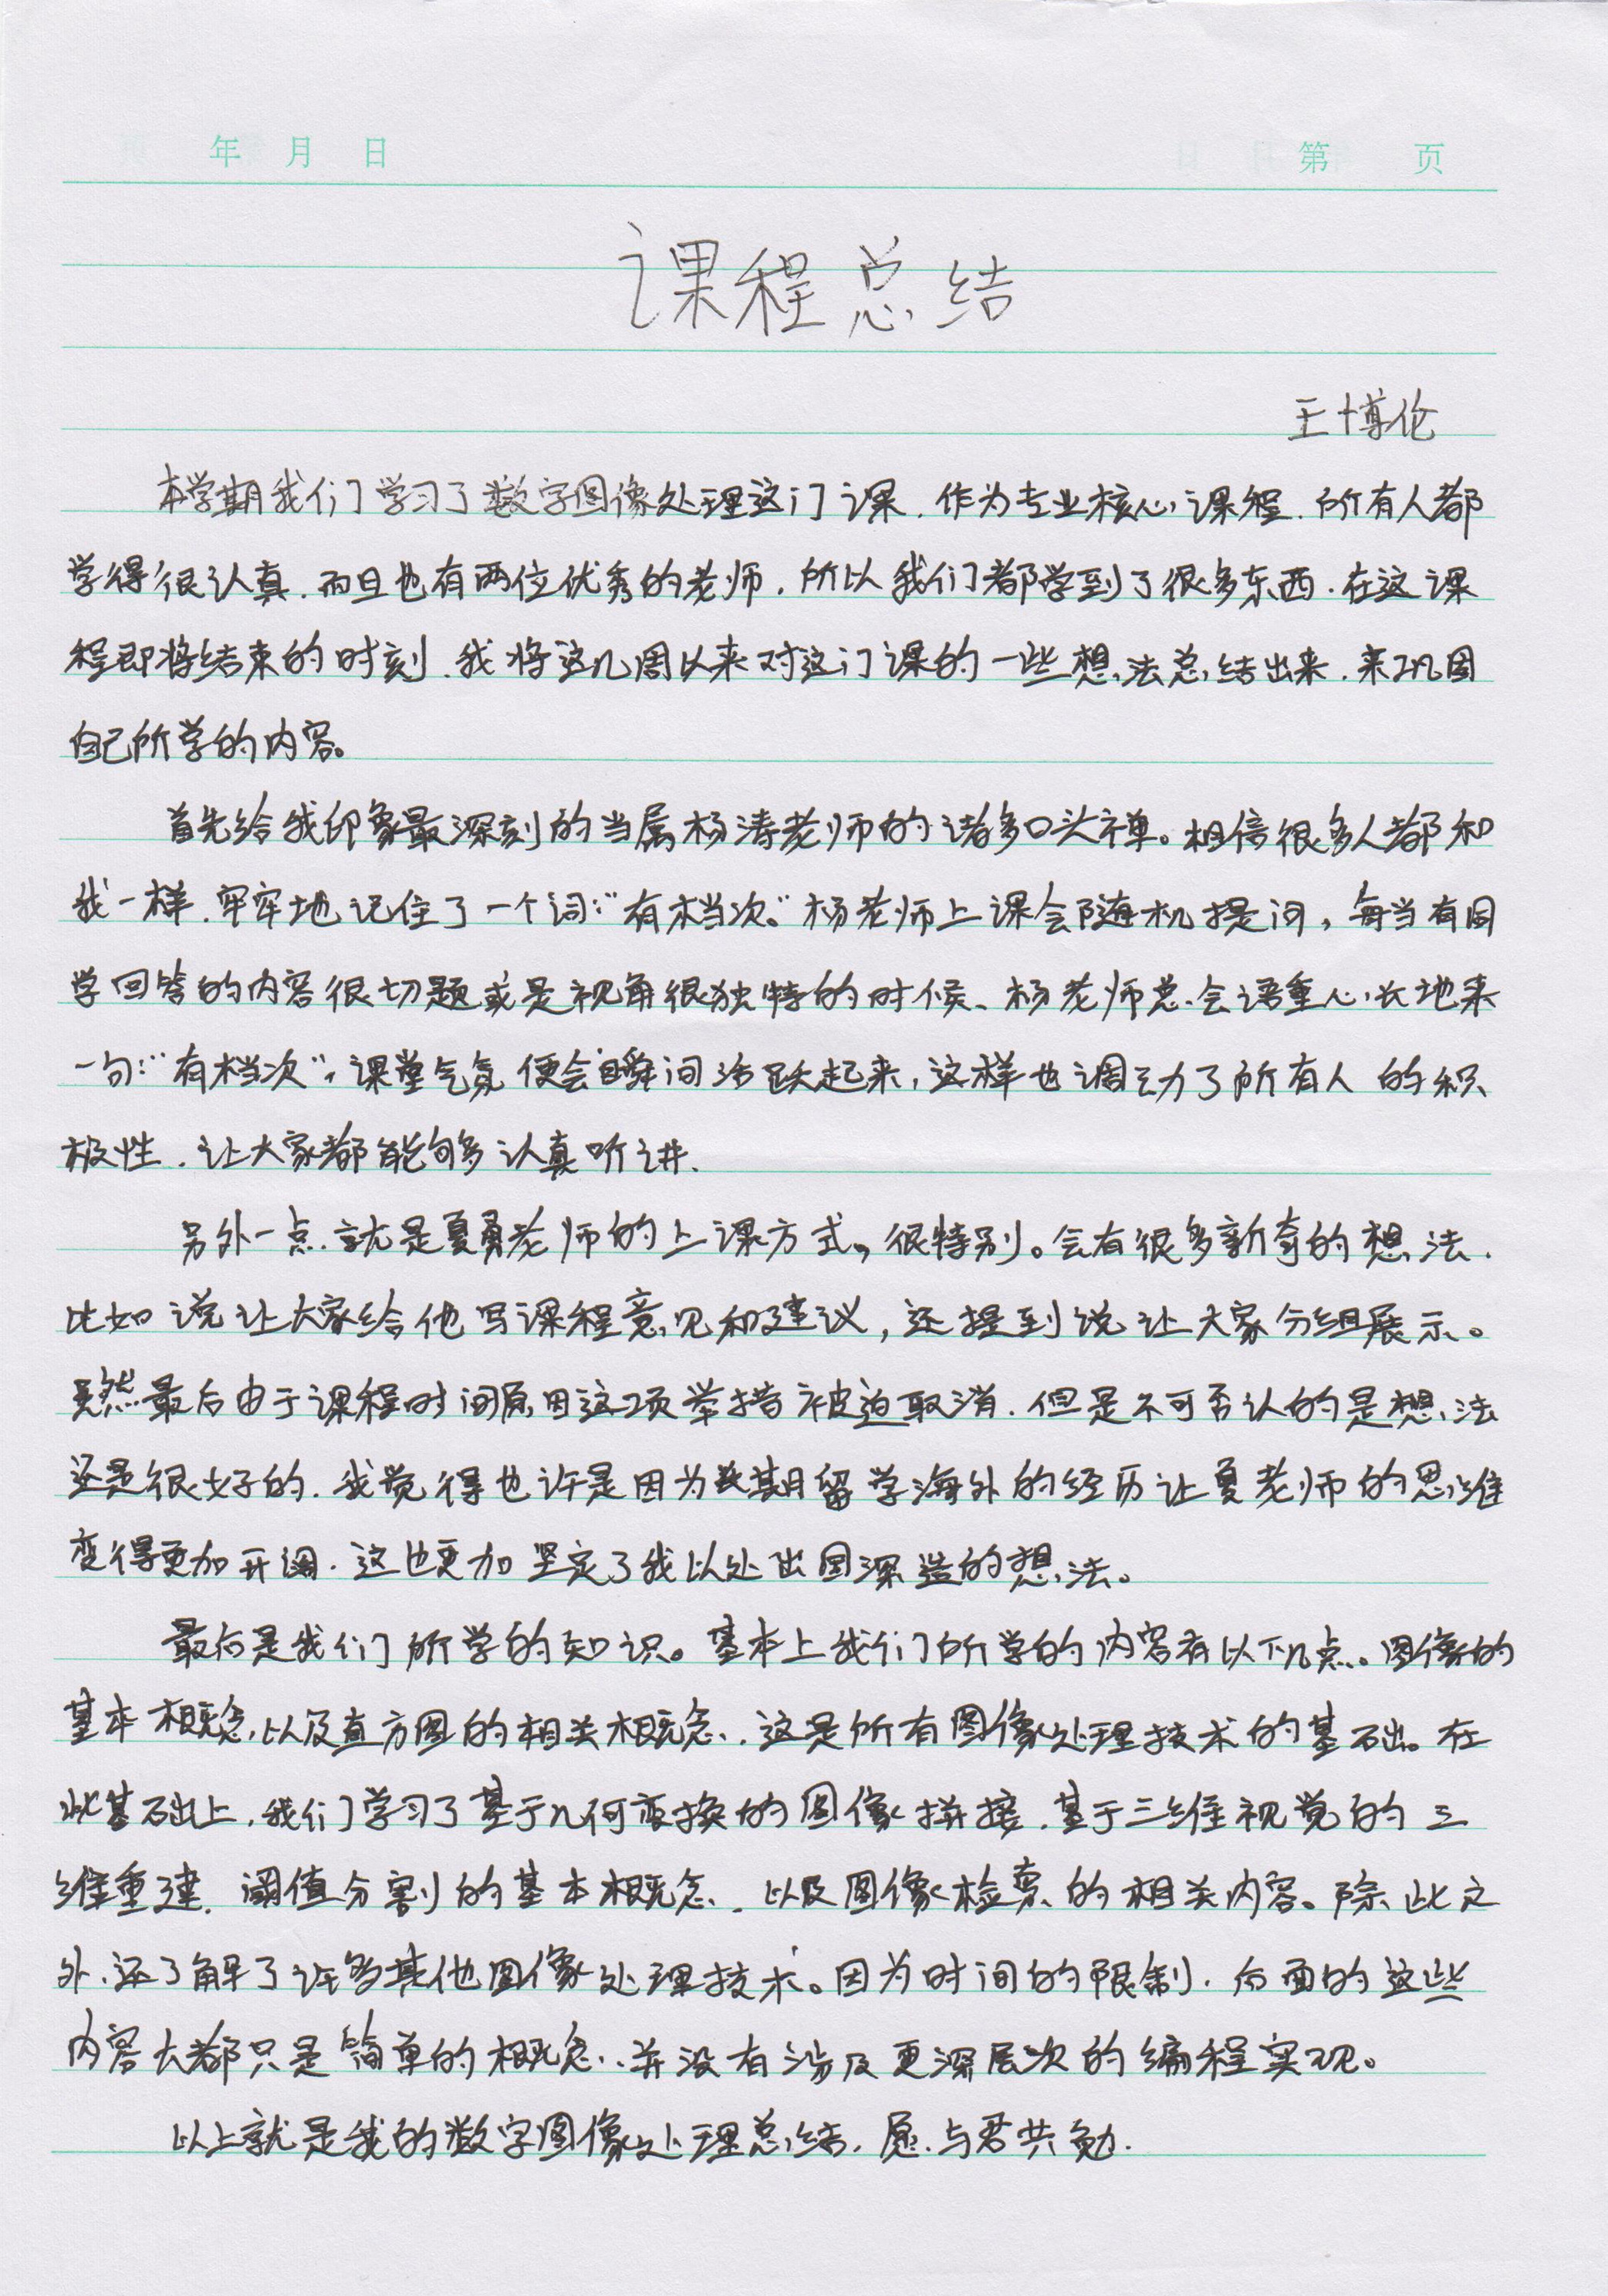 年 月 日 第 页
课程总结
王博伦
本学期我们学习了数字图像处理这门课.作为专业核心课程.所有人都
学得很认真.而且也有两位优秀的老师.所以我们都学到了很多东西.在这课
程即将结束的时刻.我将这几周以来对这门课的一些想法总结出来.来巩固
自己所学的内容。
首先给我印象最深刻的当属杨涛老师的诸多口头禅。相信很多人都和
我一样.牢牢地记住了一个词:“有档次。”杨老师上课会随机提问,每当有同
学回答的内容很切题或是视角很独特的时候、杨老师总会语重心长地来
一句:“有档次”,课堂气氛便会瞬间活跃起来,这样也调动了所有人的积
极性.让大家都能够认真听讲.
另外一点.就是夏勇老师的上课方式,很特别。会有很多新奇的想法.
比如说让大家给他写课程意见和建议,还提到说让大家分组展示。
虽然最后由于课程时间原因这项举措被迫取消.但是不可否认的是想法
还是很好的.我觉得也许是因为长期留学海外的经历让夏老师的思维
变得更加开阔.这也更加坚定了我以处出国深造的想法。
最后是我们所学的知识。基本上我们所学的内容有以下几点。图像的
基本概念,以及直方图的相关概念.这是所有图像处理技术的基础。在
此基础上,我们学习了基于几何变换的图像拼接.基于三维视觉的三
维重建.阈值分割的基本概念.以及图像检索的相关内容。除此之
外.还了解了许多其他图像处理技术。因为时间的限制.后面的这些
内容大都只是简单的概念.并没有涉及更深层次的编程实现。
以上就是我的数字图像处理总结.愿与君共勉.